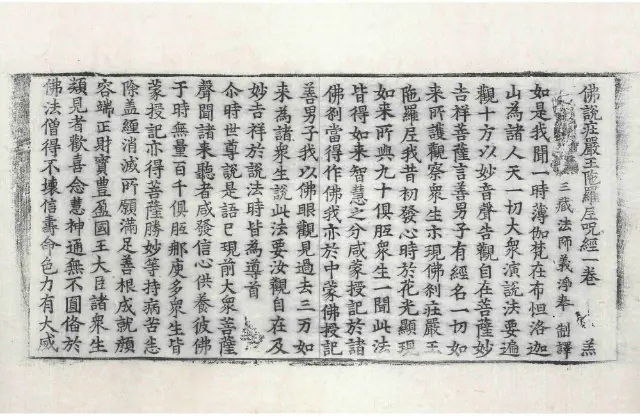 佛說莊嚴王陁羅尼呪經一卷 羔
三藏法師義淨奉 制譯
如是我聞一時薄伽梵在布怛洛迦
山為諸人天一切大衆演說法要遍
觀十方以妙音聲告觀自在菩薩妙
吉祥菩薩言善男子有經名一切如
来所護觀察衆生示現佛刹莊嚴王
陁羅尼我昔初發心時於花光顯現
如来所與九十俱胝衆生一聞此法
皆得如来智慧之分咸蒙授記於諸
佛刹當得作佛我亦於中蒙佛授記
善男子我以佛眼觀見過去三万如
来為諸衆生說此法要汝觀自在及
妙吉祥於說法時皆為導首
尒時世尊說是語已現前大衆菩薩
聲聞諸来聽者咸發信心供養彼佛
于時無量百千俱胝那庾多衆生皆
蒙授記亦得菩薩勝妙等持病苦悉
除盖纏消滅所願滿足善根成就顏
容端正財寶豊盈國王大臣諸衆生
類見者歡喜念慧神通無不圓俻於
佛法僧得不壞信壽命色力有大威